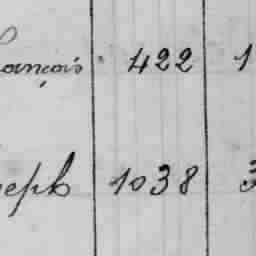 ançois 422 1
seph 1038 3